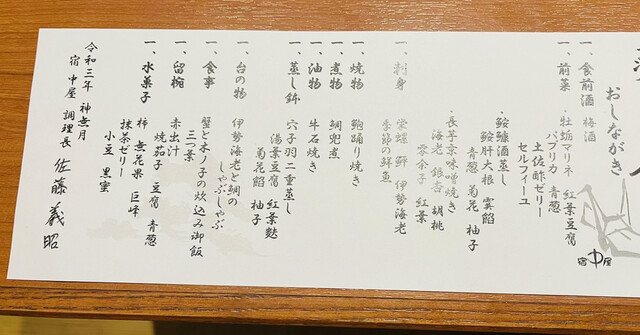 おしながき
一、食前酒 梅酒
一、前菜
・牡蛎マリネ 紅葉豆腐
土佐酢ゼリー
パプリカ 青葱
セルフィーユ
・鮟鱇酒蒸し
鮟肝大根 雲餡
青葱 菊花 柚子
・長芋京味噌焼き
海老 銀杏 胡桃
零余子 紅葉
一、刺身
栄螺 鮃 伊勢海老
季節の鮮魚
一、焼物 鮑踊り焼き
一、煮物 鯛兜煮
一、油物 牛石焼き
一、蒸し鉢 穴子羽二重蒸し
湯葉豆腐 紅葉麩
菊花餡 柚子
一、台の物 伊勢海老と鯛の
しゃぶしゃぶ
一、食事 蟹と木ノ子の炊込み御飯
三つ葉
一、留椀 赤出汁
焼茄子 豆腐 青葱
一、水菓子 柿 無花果 巨峰
抹茶ゼリー
小豆 黒蜜
令和三年 神無月
宿 中屋 調理長 佐藤義昭
宿中屋